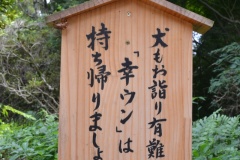 犬もお詣り有難
「幸ウン」は
持ち帰りましょ